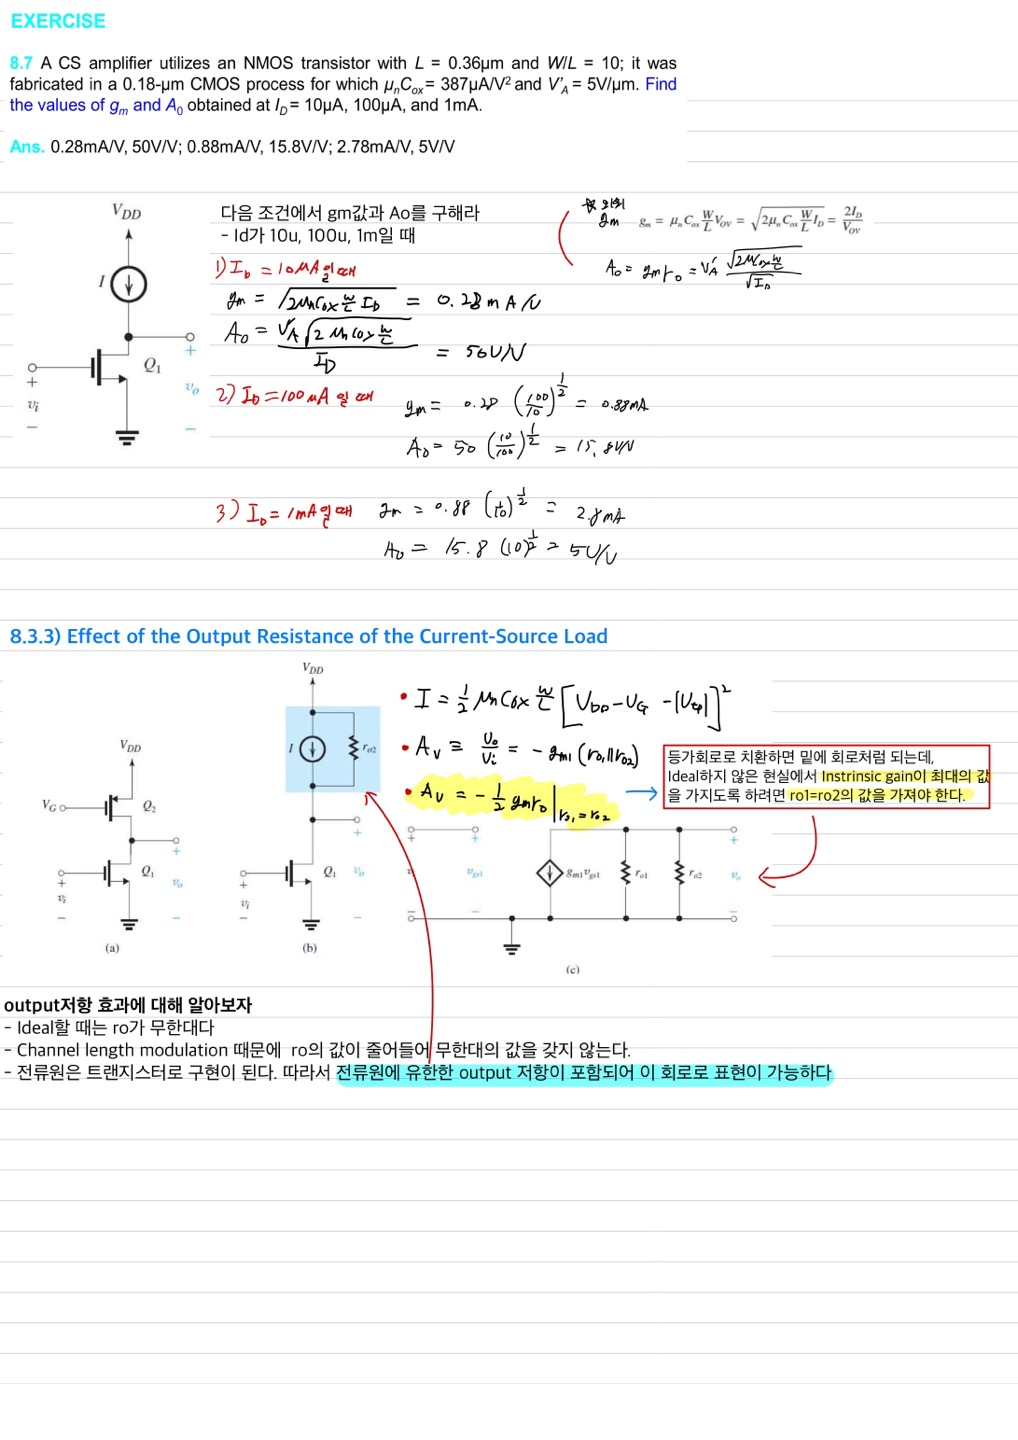 EXERCISE
8.7 A CS amplifier utilizes an NMOS transistor with L = 0.36μm and W/L = 10; it was
fabricated in a 0.18-μm CMOS process for which μnCox= 387μA/V² and V'A= 5V/μm. Find
the values of gm and A0 obtained at ID= 10μA, 100μA, and 1mA.
Ans. 0.28mA/V, 50V/V; 0.88mA/V, 15.8V/V; 2.78mA/V, 5V/V
VDD
I
Q1
+
vo
−
+
vi
−
다음 조건에서 gm값과 Ao를 구해라
- Id가 10u, 100u, 1m일 때
gm
gm = μnCox W/L VOV = √(2μnCox W/L ID) = 2ID/VOV
A0 = gmro = V'A √(2μCox W/L)/√ID
1) ID = 10μA일때
gm = √(2μnCox W/L ID) = 0.28mA/V
A0 = V'A√(2μnCox W/L)/ID = 50V/V
2) ID=100μA일때
gm = 0.28 (100/10)^1/2 = 0.88mA
A0 = 50 (10/100)^1/2 = 15.8V/V
3) ID=1mA일때
gm = 0.88 (1/10)^1/2 = 2.8mA
A0 = 15.8 (10)^1/2 = 5V/V
8.3.3) Effect of the Output Resistance of the Current-Source Load
VDD
VG
Q2
Q1
+
vo
−
+
vi
−
(a)
VDD
I
ro2
Q1
+
vo
−
+
vi
−
(b)
• I = 1/2 μnCox W/L [VDD−VG −|Vtp|]²
• Av ≡ vo/vi = −gm1 (ro1||ro2)
• Av = −1/2 gmro |ro1=ro2
등가회로로 치환하면 밑에 회로처럼 되는데,
Ideal하지 않은 현실에서 Instrinsic gain이 최대의 값
을 가지도록 하려면 ro1=ro2의 값을 가져야 한다.
+
−
+
vgs1
−
gm1vgs1
ro1
ro2
+
vo
−
(c)
output저항 효과에 대해 알아보자
- Ideal할 때는 ro가 무한대다
- Channel length modulation 때문에 ro의 값이 줄어들어 무한대의 값을 갖지 않는다.
- 전류원은 트랜지스터로 구현이 된다. 따라서 전류원에 유한한 output 저항이 포함되어 이 회로로 표현이 가능하다